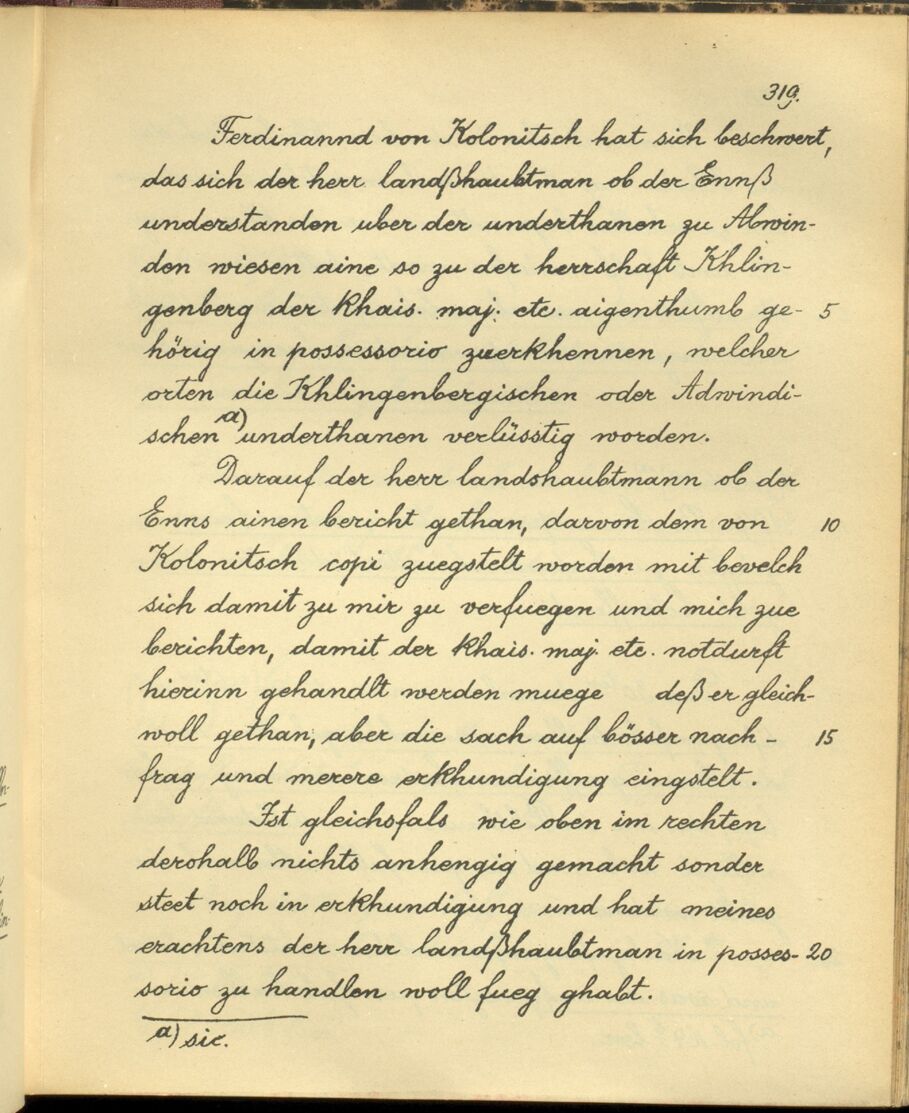 319.
Ferdinannd von Kolonitsch hat sich beschwert,
das sich der herr landßhaubtman ob der Ennß
understanden uber der underthanen zu Abwin-
den wiesen aine so zu der herrschaft Khlin-
genberg der khais. maj. etc. aigenthumb ge- 5
hörig in possessorio zuerkhennen, welcher
orten die Khlingenbergischen oder Adwindi-
schen a) underthanen verlüsstig worden.
Darauf der herr landshaubtmann ob der
Enns ainen bericht gethan, darvon dem von 10
Kolonitsch copi zuegstelt worden mit bevelch
sich damit zu mir zu verfuegen und mich zue
berichten, damit der khais. maj. etc. notdurft
hierinn gehandlt werden muege deß er gleich-
woll gethan, aber die sach auf bösser nach- 15
frag und merere erkhundigung eingstelt.
Ist gleichsfals wie oben im rechten
derohalb nichts anhengig gemacht sonder
steet noch in erkhundigung und hat meines
erachtens der herr landßhaubtman in posses- 20
sorio zu handlen woll fueg ghabt.
a) sic.